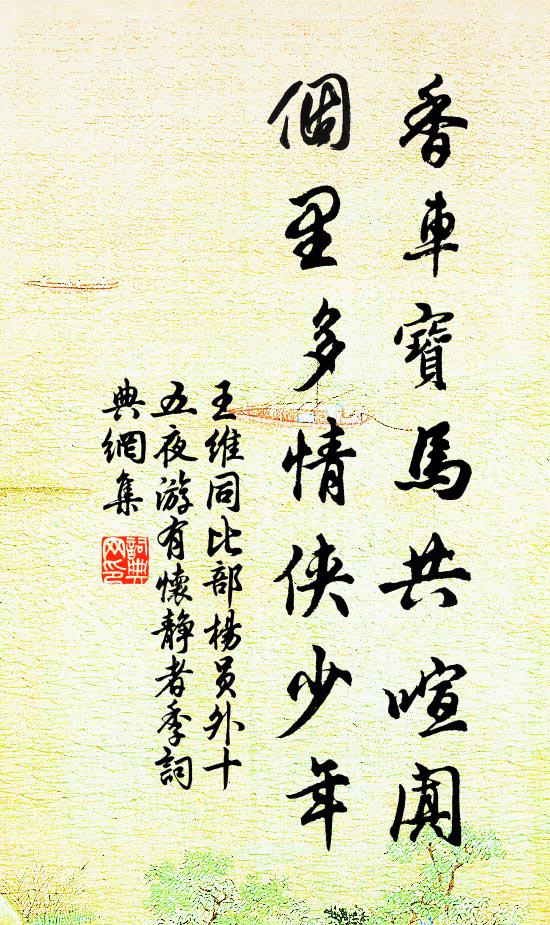 香車寶馬共喧闐
個里多情俠少年
王維同比部楊員外十
五夜游有懷靜者季詞
典網集
詞典
网印